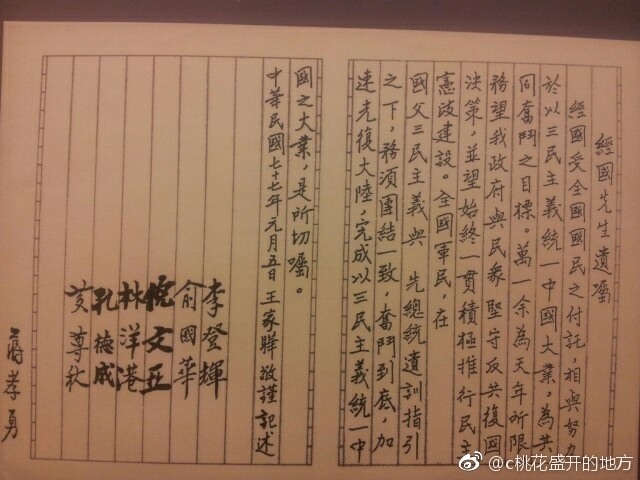 經國先生遺囑
經國受全國國民之付託，相與努力
於以三民主義統一中國大業，為共
同奮鬥之目標。萬一余為天年所限
務望我政府與民衆堅守反共復國
決策，並望始終一貫積極推行民主
憲政建設。全國軍民，在
國父三民主義與 先總統遺訓指引
之下，務須團結一致，奮鬥到底，加
速光復大陸，完成以三民主義統一中
國之大業，是所切囑。
中華民國七十七年元月五日王家驊敬謹記述
李登輝
俞國華
倪文亞
林洋港
孔德成
黃尊秋
蔣孝勇
@c桃花盛开的地方